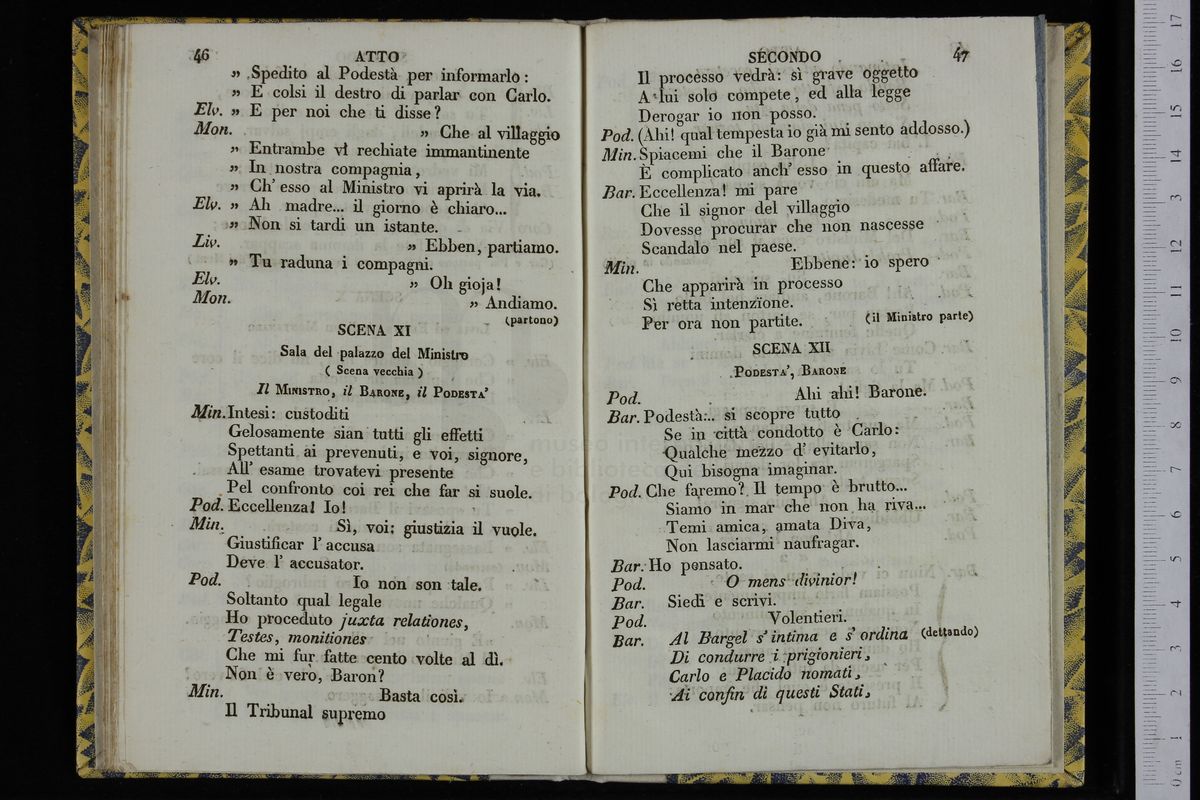 46 ATTO
„ Spedito al Podestà per informarlo:
„ E colsi il destro di parlar con Carlo.
Elv. „ E per noi che ti disse?
Mon. „ Che al villaggio
„ Entrambe vi rechiate immantinente
„ In nostra compagnia,
„ Ch' esso al Ministro vi aprirà la via.
Elv. „ Ah madre... il giorno è chiaro...
„ Non si tardi un istante.
Liv. „ Ebben, partiamo.
„ Tu raduna i compagni.
Elv. „ Oh gioja!
Mon. „ Andiamo.
(partono)
SCENA XI
Sala del palazzo del Ministro
( Scena vecchia )
Il MINISTRO, il BARONE, il PODESTA'
Min. Intesi: custoditi
Gelosamente sian tutti gli effetti
Spettanti ai prevenuti, e voi, signore,
All' esame trovatevi presente
Pel confronto coi rei che far si suole.
Pod. Eccellenza! Io!
Min. Sì, voi; giustizia il vuole.
Giustificar l' accusa
Deve l' accusator.
Pod. Io non son tale.
Soltanto qual legale
Ho proceduto juxta relationes,
Testes, monitiones
Che mi fur fatte cento volte al dì.
Non è vero, Baron?
Min. Basta così.
Il Tribunal supremo
SECONDO 47
Il processo vedrà: sì grave oggetto
A lui solo compete, ed alla legge
Derogar io non posso.
Pod. (Ahi! qual tempesta io già mi sento addosso.)
Min. Spiacemi che il Barone
È complicato anch' esso in questo affare.
Bar. Eccellenza! mi pare
Che il signor del villaggio
Dovesse procurar che non nascesse
Scandalo nel paese.
Min. Ebbene: io spero
Che apparirà in processo
Sì retta intenzïone.
Per ora non partite. (il Ministro parte)
SCENA XII
PODESTA', BARONE
Pod. Ahi ahi! Barone.
Bar. Podestà... si scopre tutto
Se in città condotto è Carlo:
Qualche mezzo d' evitarlo,
Qui bisogna imaginar.
Pod. Che faremo? Il tempo è brutto...
Siamo in mar che non ha riva...
Temi amica, amata Diva,
Non lasciarmi naufragar.
Bar. Ho pensato.
Pod. O mens divinior!
Bar. Siedi e scrivi.
Pod. Volentieri.
Bar. Al Bargel s' intima e s' ordina (dettando)
Di condurre i prigionieri,
Carlo e Placido nomati,
Ai confin di questi Stati,